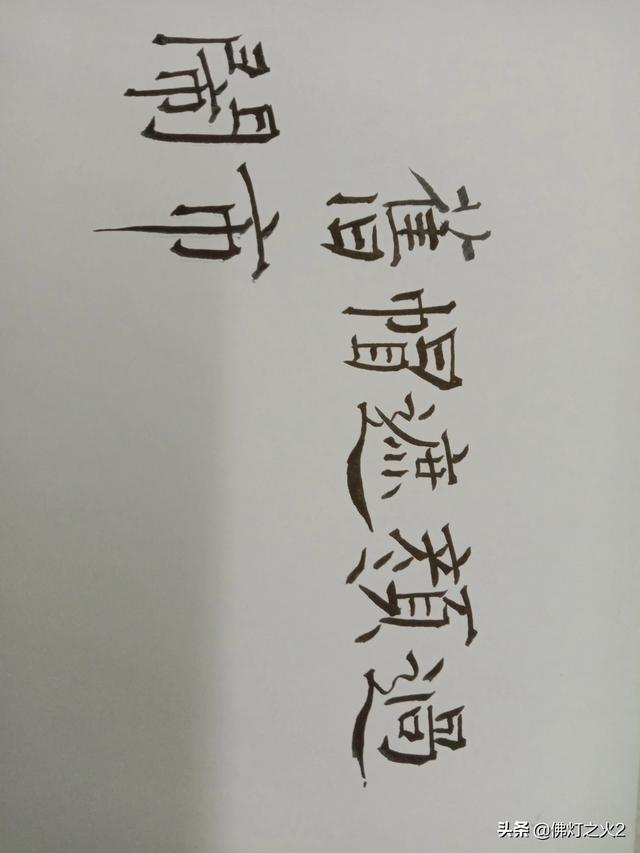 舊帽遮顏過
鬧市
头条 @佛灯之火2